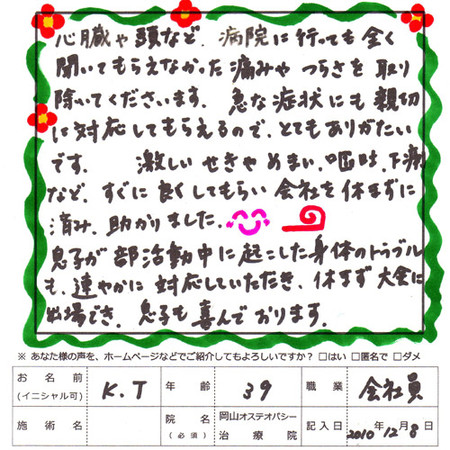 心臓や頭など、病院に行っても全く
聞いてもらえなかった痛みや つらさを 取り
除いてくださいます。 急な症状にも 親切
に対応してもらえるので、とても ありがたい
です。 激しい せきや めまい、嘔吐、下痢
など、すぐに 良くしてもらい 会社を 休まずに
済み、助かりました。
息子が 部活動中に 起こした 身体のトラブル
も、速やかに 対応していただき、休まず 大会に
出場でき、息子も 喜んでおります。
※ あなた様の声を、ホームページなどでご紹介してもよろしいですか? □はい □匿名で □ダメ
お名前 (イニシャル可) K.T 年齢 39 職業 会社員
施術名 院名 (必須) 岡山オステオパシー治療院 記入日 2010年12月8日